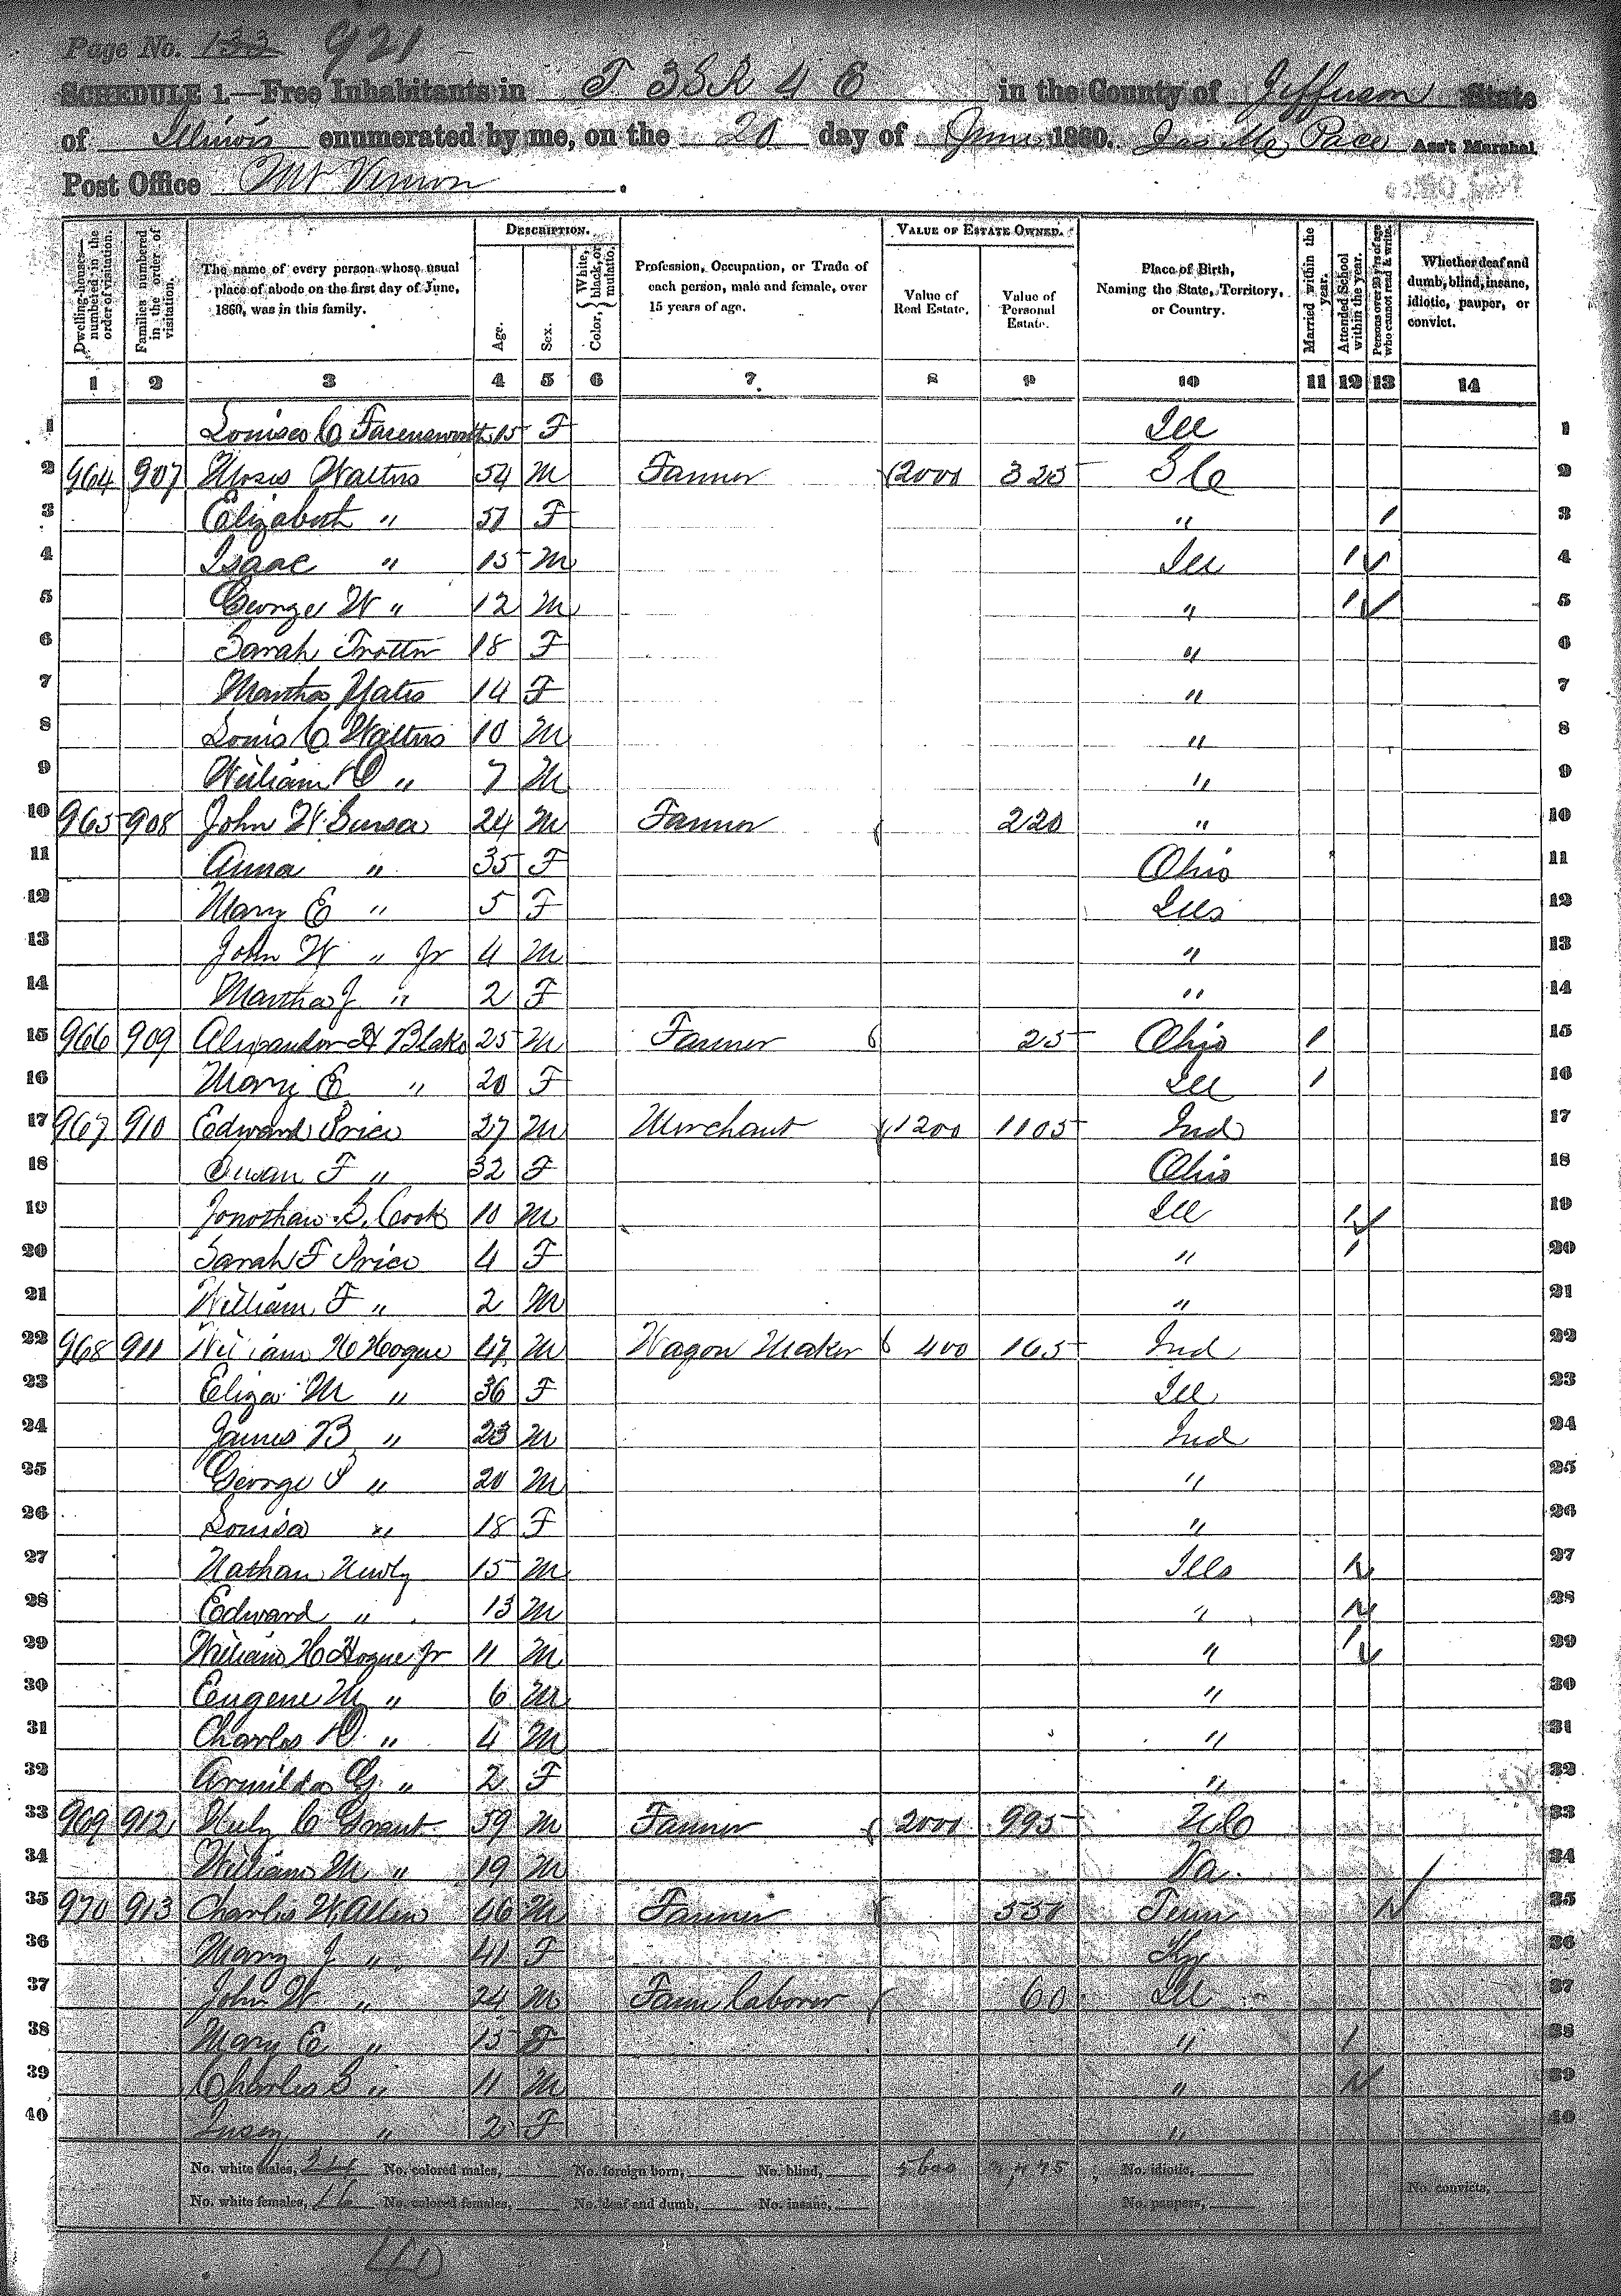 Page No. 133 921
SCHEDULE 1.—Free Inhabitants in T 3 S R 4 E in the County of Jefferson State
of Illinois enumerated by me, on the 20 day of June 1860. Jas M Pace Ass't Marshal.
Post Office Mt Vernon.
Dwelling-houses—numbered in the order of visitation.
Families numbered in the order of visitation.
The name of every person whose usual place of abode on the first day of June, 1860, was in this family.
DESCRIPTION.
Age.
Sex.
Color, { White, black, or mulatto.
Profession, Occupation, or Trade of each person, male and female, over 15 years of age.
VALUE OF ESTATE OWNED.
Value of Real Estate.
Value of Personal Estate.
Place of Birth, Naming the State, Territory, or Country.
Married within the year.
Attended School within the year.
Persons over 20 y'rs of age who cannot read & write.
Whether deaf and dumb, blind, insane, idiotic, pauper, or convict.
1 2 3 4 5 6 7 8 9 10 11 12 13 14
1 Louisa C Farensworth 15 F Ill 1
2 964 907 Moses Walters 54 M Farmer 2000 325 S C 2
3 Elizabeth " 51 F " / 3
4 Isaac " 15 M Ill / 4
5 George W " 12 M " / 5
6 Sarah Trotter 18 F " 6
7 Martha Yates 14 F " 7
8 Louis C Walters 10 M " 8
9 William " 7 M " 9
10 965 908 John W 24 M Farmer 220 " 10
11 Anna " 35 F Ohio 11
12 Mary E " 5 F Ills 12
13 John W " Jr 4 M " 13
14 Martha J " 2 F " 14
15 966 909 Alexander H Blake 25 M Farmer 25 Ohio / 15
16 Mary E " 20 F Ill / 16
17 967 910 Edward Price 27 M Merchant 1200 1105 Ind 17
18 Susan F " 32 F Ohio 18
19 Jonothan S. Cook 10 M Ill / 19
20 Sarah F Price 4 F " / 20
21 William F " 2 M " 21
22 968 911 William H Hogue 47 M Wagon Maker 400 165 Ind 22
23 Eliza M " 36 F Ill 23
24 James B " 23 M Ind 24
25 George P " 20 M " 25
26 Louisa " 18 F " 26
27 Nathan Newby 15 M Ills / 27
28 Edward " 13 M " / 28
29 William H Hogue Jr 11 M " / 29
30 Eugene M " 6 M " 30
31 Charles " 4 M " 31
32 Armilda G " 2 F " 32
33 969 912 C Grant 59 M Farmer 2000 995 N C 33
34 William M " 19 M Va. 34
35 970 913 Charles W Allen 46 M Farmer 550 Tenn / 35
36 Mary J " 41 F Ky 36
37 John W " 24 M Farm laborer 60 Ill 37
38 Mary E " 15 F " / 38
39 Charles S " 11 M " / 39
40 Susan " 2 F " 40
No. white males, 24 No. colored males, No. foreign born, No. blind, 5600 No. idiotic,
No. white females, 16 No. colored females, No. deaf and dumb, No. insane, No. paupers, No. convicts,
40